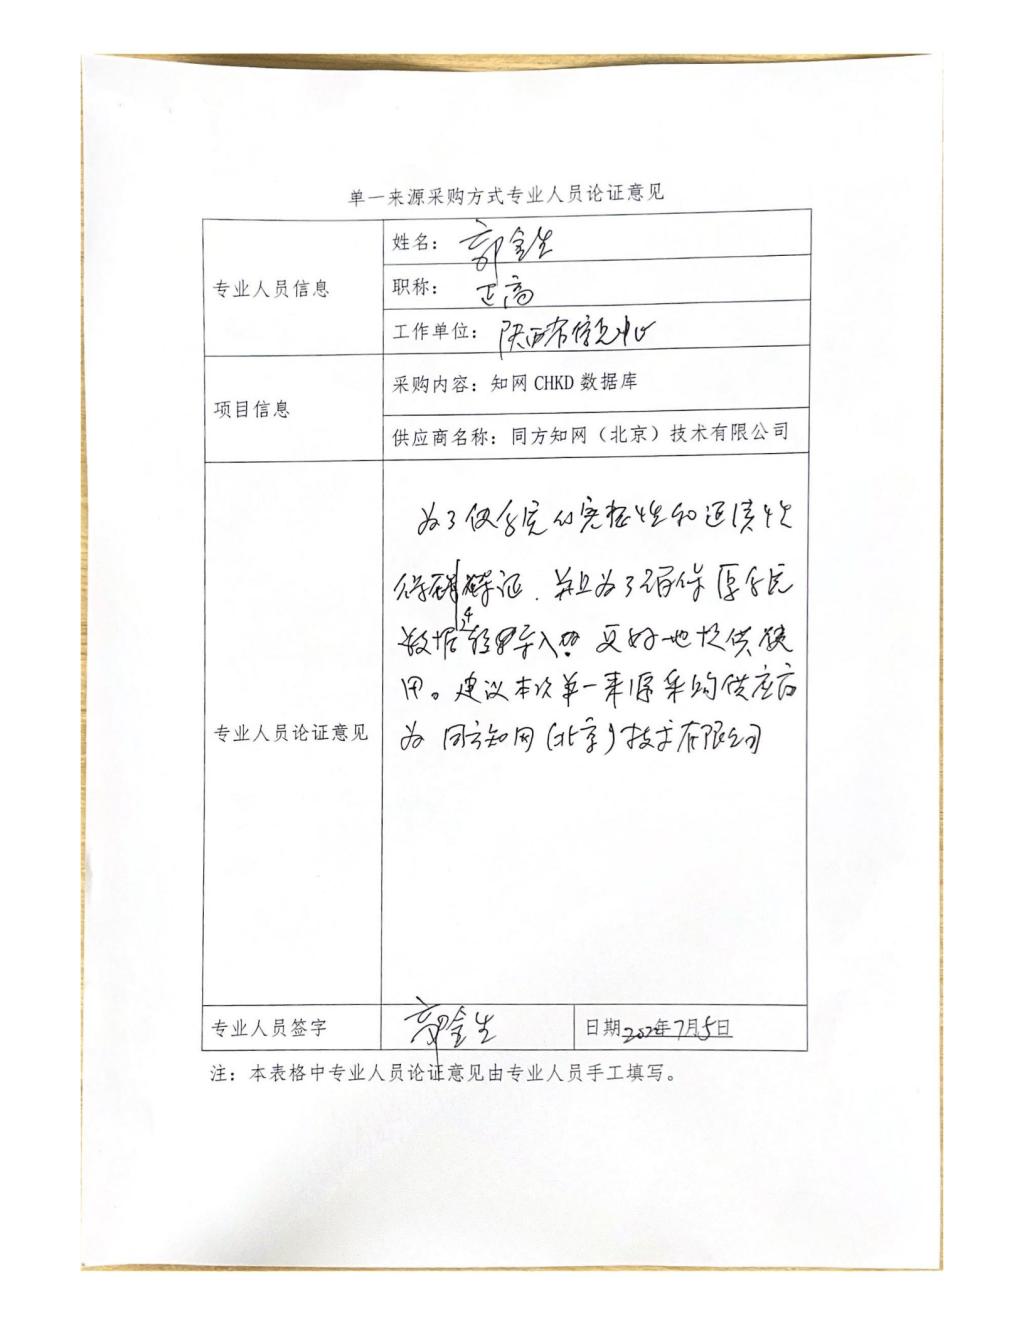 单一来源采购方式专业人员论证意见
专业人员信息
姓名：郭全生
职称：正高
工作单位：陕西省信息中心
项目信息
采购内容：知网 CHKD 数据库
供应商名称：同方知网（北京）技术有限公司
专业人员论证意见
为了使系统的完整性和延续性
得到保证，并且为了确保原系统
数据 导入 更好地提供使
用。建议本次单一来源采购供应商
为 同方知网(北京)技术有限公司
专业人员签字 郭全生 日期2022年7月5日
注：本表格中专业人员论证意见由专业人员手工填写。